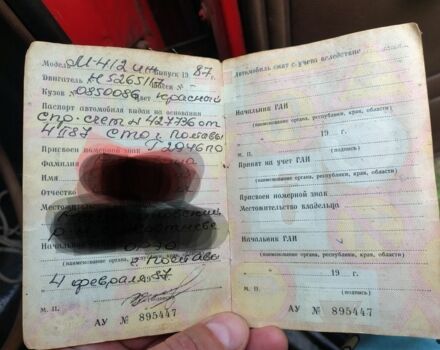 Модель М-412 ИЖ Выпуск 1987 г.
Двигатель № 5265167 Шасси № -
Кузов 0850086 Цвет красный
Паспорт автомобиля выдан на основании
спр. счет № 427736 от
СТО г. Полтавы
Присвоен номерной знак
Фамилия
Имя
Отчество
Местожительство
Начальник
(наименование органа, республики, края, области)
4 февраля 87
М. П. (подпись)
АУ № 895447
Автомобиль снят с учета вследствие
Начальник ГАИ
(наименование органа, республики, края, области)
19 г.
М. П. (подпись)
Принят на учет ГАИ
(наименование органа, республики, края, области)
Присвоен номерной знак
Местожительство владельца
Начальник ГАИ
(наименование органа, республики, края, области)
19 г.
М. П. (подпись)
АУ № 895447